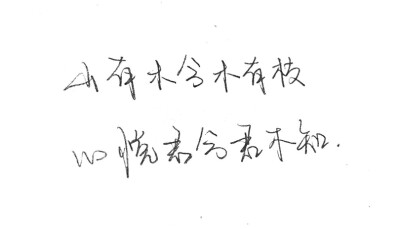 山有木兮木有枝
心悦君兮君不知.